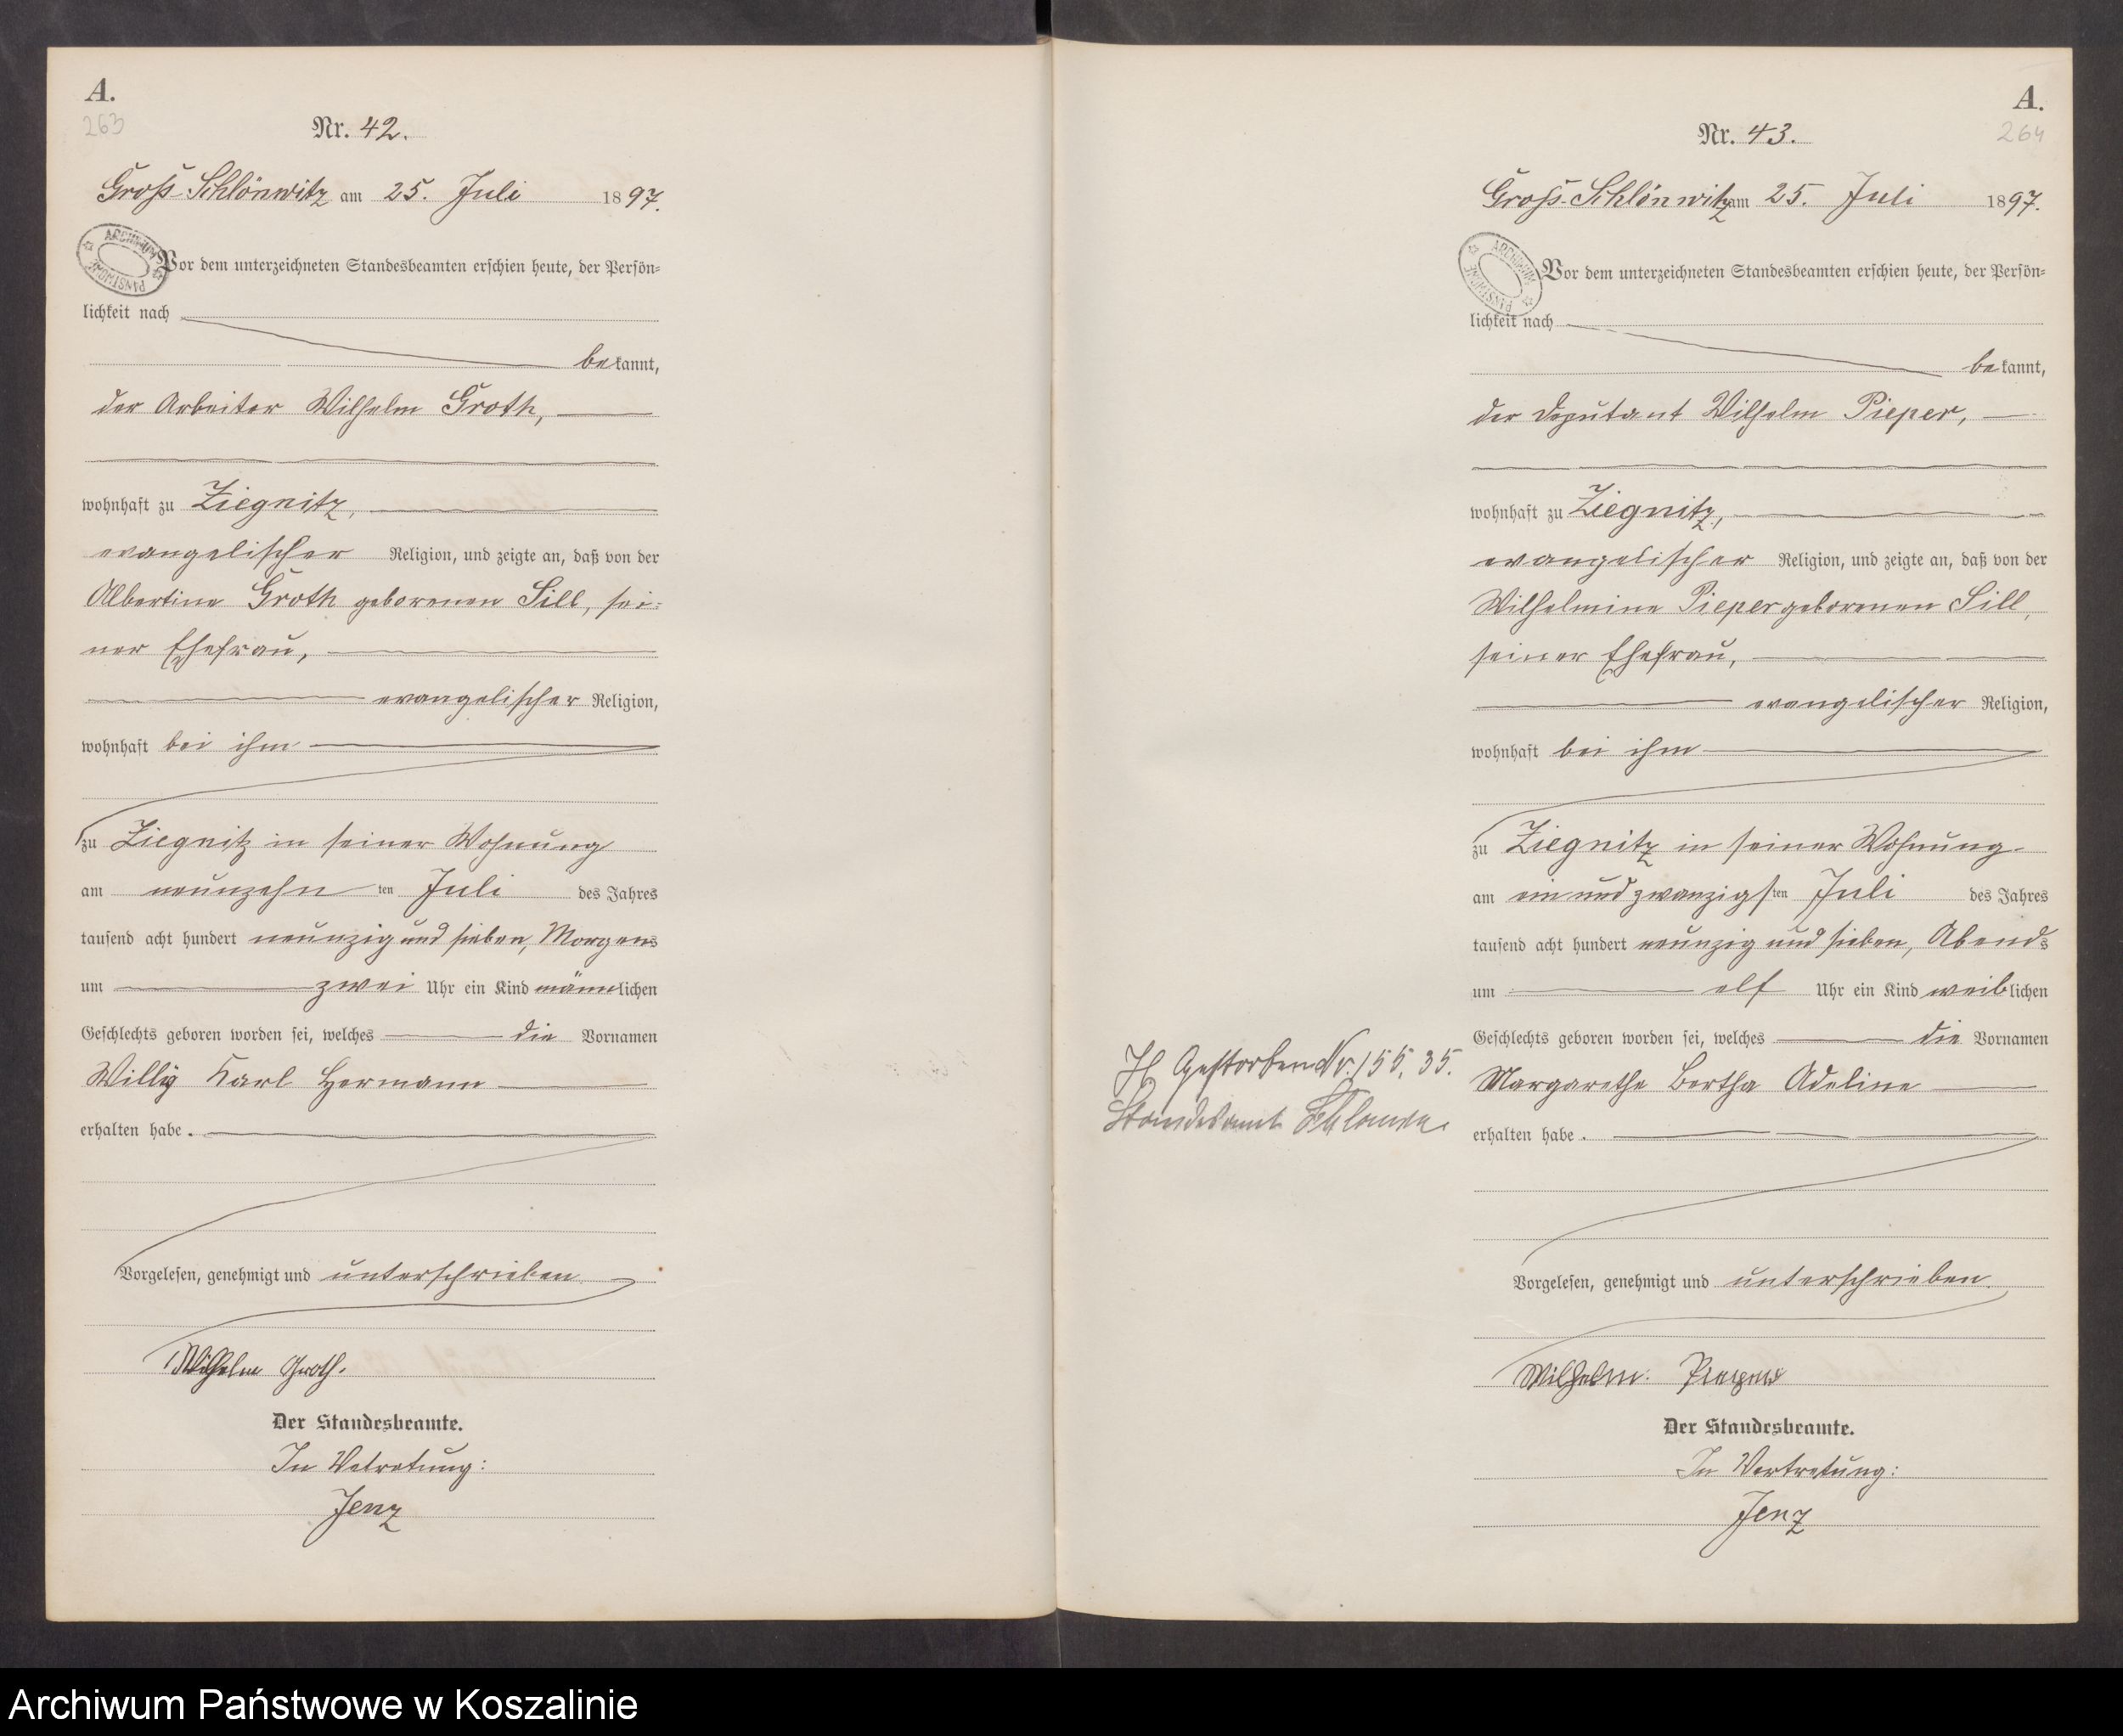 A.
263
Nr. 42.
Groß-Schlönwitz am 25. Juli 1897.
ARCHIWUM PAŃSTWOWE
Vor dem unterzeichneten Standesbeamten erschien heute, der Persön=
lichkeit nach
bekannt,
der Arbeiter Wilhelm Groth,
wohnhaft zu Ziegnitz,
evangelischer Religion, und zeigte an, daß von der
Albertine Groth geborenen Sill, sei=
ner Ehefrau,
evangelischer Religion,
wohnhaft bei ihm
zu Ziegnitz in seiner Wohnung
am neunzehn ten Juli des Jahres
tausend acht hundert neunzig und sieben, Morgens
um zwei Uhr ein Kind männlichen
Geschlechts geboren worden sei, welches die Vornamen
Willy Karl Hermann
erhalten habe.
Vorgelesen, genehmigt und unterschrieben
Wilhelm Groth.
Der Standesbeamte.
In Vetretung:
Jenz
A.
264
Nr. 43.
Groß-Schlönwitz am 25. Juli 1897.
ARCHIWUM PAŃSTWOWE
Vor dem unterzeichneten Standesbeamten erschien heute, der Persön=
lichkeit nach
bekannt,
der Deputant Wilhelm Pieper,
wohnhaft zu Ziegnitz,
evangelischer Religion, und zeigte an, daß von der
Wilhelmine Pieper geborenen Sill,
seiner Ehefrau,
evangelischer Religion,
wohnhaft bei ihm
zu Ziegnitz in seiner Wohnung
am ein und zwanzigsten Juli des Jahres
tausend acht hundert neunzig und sieben, Abends
um elf Uhr ein Kind weiblichen
Geschlechts geboren worden sei, welches die Vornamen
Margarethe Bertha Adeline
erhalten habe.
Gestorben Nr. 155, 35.
Standesamt Schlawe.
Vorgelesen, genehmigt und unterschrieben.
Wilhelm Pieper
Der Standesbeamte.
In Vertretung:
Jenz
Archiwum Państwowe w Koszalinie